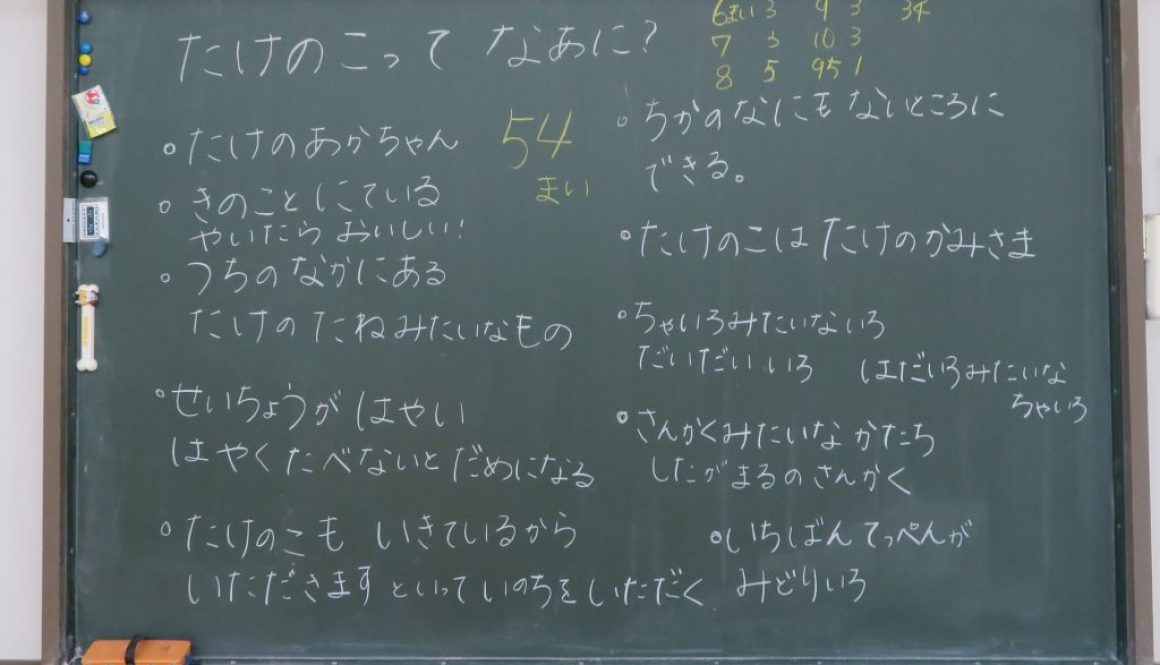 たけのこって なあに?
・たけのあかちゃん
・きのことしにている
やいたら おいしい!
・うちのなかにある
たけのたねみたいなもの
・せいちょうが はやい
はやくたべないと だめになる
・たけのこも いきているから
いただきますといっていのちをいただく
54
まい
6まい 3 9 3
7 3 10 3
8 5 95 1
・ちかのなにもないところに
できる。
・たけのこは たけのかみさま
・ちゃいろみたいないろ
だいだいいろ はだいろみたいな
ちゃいろ
・さんかくみたいな かたち
したがまるのさんかく
・いちばんてっぺんが
みどりいろ